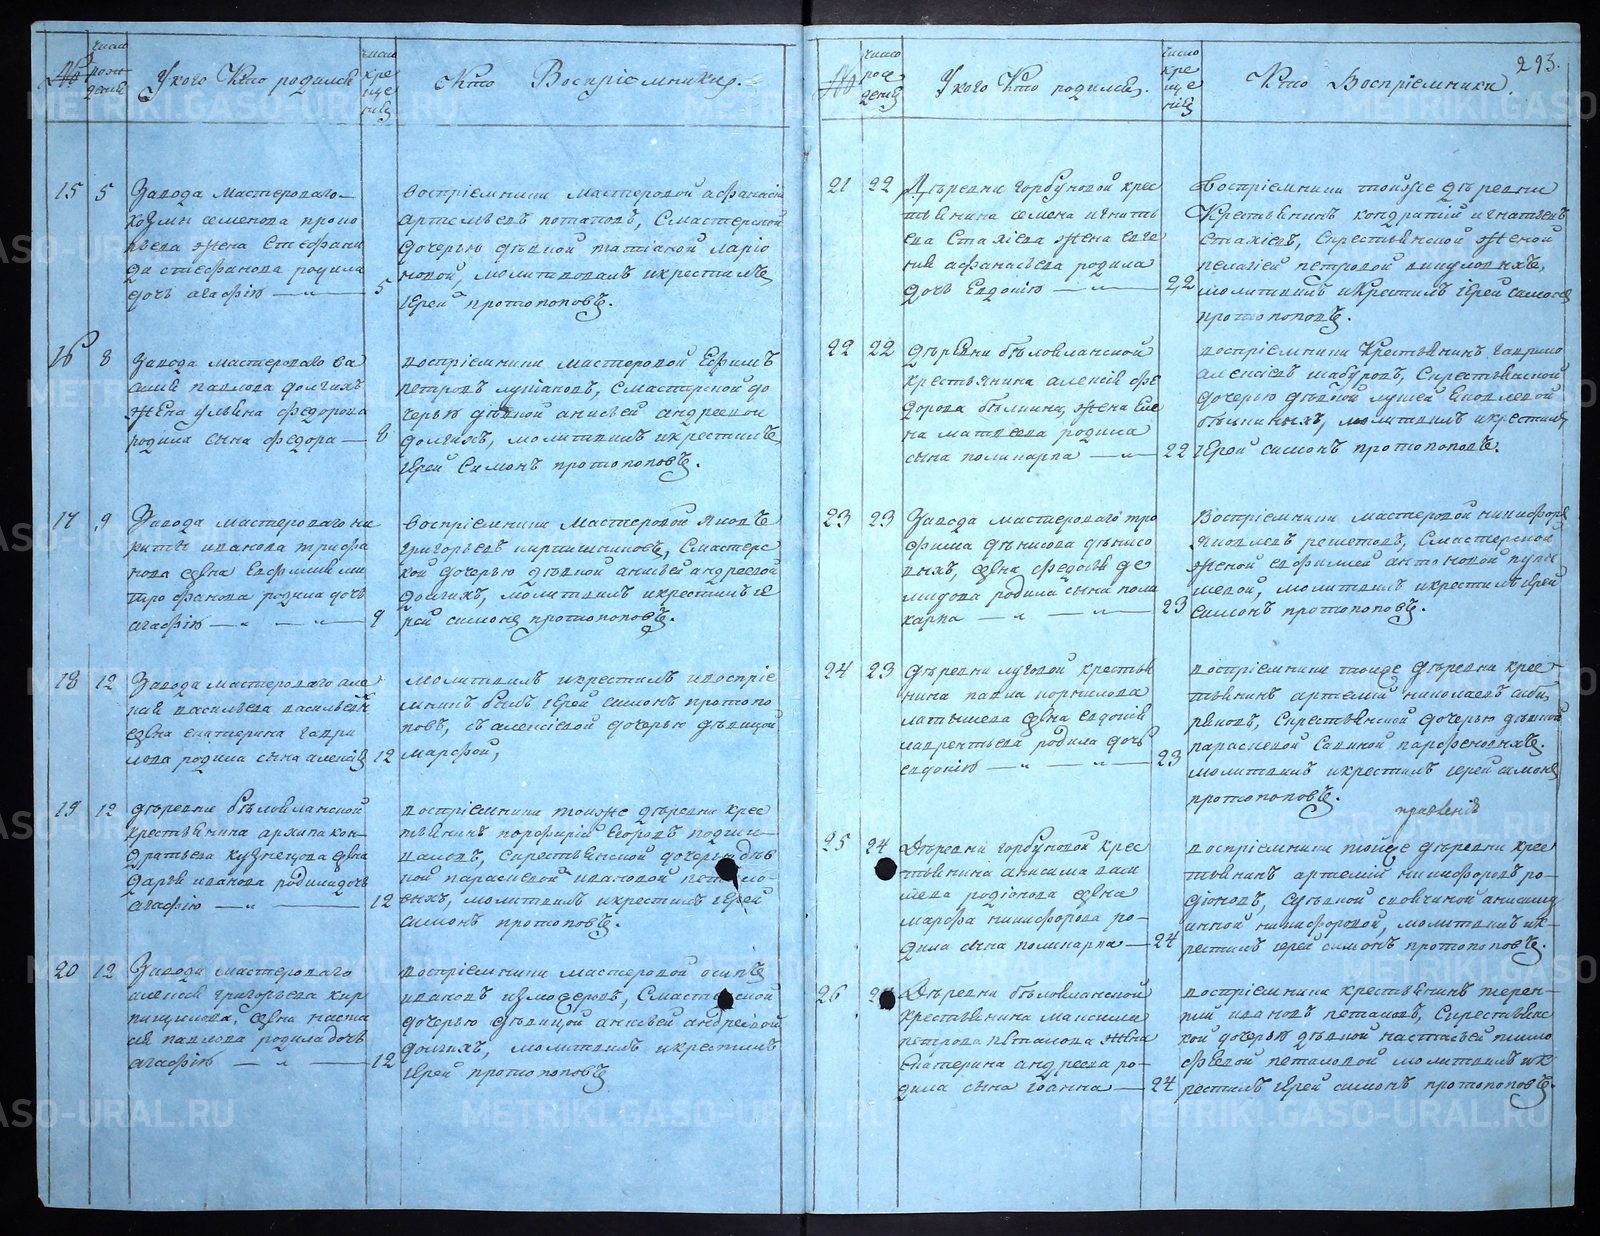 №
число рождения
У кого кто родился
число крещения
Кто Восприемники.
15 5 Завода мастероваго
козмы семенова
жена Стефани
да стефанова родила
дочь агафiю 5
восприемники мастеровой афанасiй
артемьевъ потаповъ, Смастерской
дочерью девкой татiаной ларiо
новой, молитвовалъ икрестилъ
iерей протопоповъ.
16 8 Завода мастероваго ва
силiя павлова долгихъ
жена ульяна федорова
родила сына федора 8
восприемники мастеровой Ефимъ
петровъ, Смастерской до
черью девкой анисьей андреевой
долгихъ, молитвилъ икрестилъ
iерей Симонъ протопоповъ.
17 9 Завода мастероваго ни
киты иванова трифа
нова жена Евфимия ми
трофанова родила дочь
агафiю 9
восприемники мастеровой яковъ
григорьевъ кирпишниковъ, Смастерс
кой дочерью девкой анисьей андреевой
долгихъ, молитвилъ икрестилъ iе
рей симонъ протопоповъ.
18 12 Завода мастероваго але
ксiя васильева васильевыхъ
жена екатерина гаври
лова родила сына алексiя 12
молитвилъ икрестилъ ивоспрiе
мникъ былъ iерей симонъ протопо
повъ, съ алексiевой дочерью девицой
марфой,
19 12 деревни беловлянской
крестьянина архипа кон
дратьева кузнецова жена
дарья иванова родила дочь
агафiю 12
восприемники тоя же деревни крес
тьянинъ порфирiй Егоровъ
, Скрестьянской дочерью дев
кой парасковьей ивановой
, молитвилъ икрестилъ iерей
симонъ протопоповъ.
20 12 Завода мастероваго
алексея григорьева кир
пищикова, жена наста
сья павлова родила дочь
агафiю 12
восприемники мастеровой осипъ
ивановъ измодеровъ, Смастерской
дочерью девицой анисьей андреевой
долгихъ, молитвилъ икрестилъ
iерей протопоповъ
293.
№
число рождения
У кого кто родился.
число крещения
Кто Восприемники.
21 22 Деревни горбуновой крес
тьянина семена игнать
ева Стахiева жена евге
нiя афанасьева родила
дочь Евдокiю 22
Восприемники тойже деревни
Крестьянинъ кондратiй игнатьевъ
стахiевъ, Скрестьянской женой
пелагiей петровой викуловыхъ,
молитвилъ икрестилъ iерей симонъ
протопоповъ.
22 22 деревни беловлянской
крестьянина алексiя фе
дорова белкина, жена Еле
на матвеева родила
сына поликарпа 22
восприемники Крестьянинъ гаврило
алексiевъ шабуровъ, Скрестьянской
дочерью девкой лушей Яковлевой
белкиныхъ, молитвилъ икрестилъ
iерей симонъ протопоповъ.
23 23 Завода мастероваго тро
фима денисова денисо
выхъ, жена федосья де
мидова родила сына поли
карпа 23
Восприемники мастеровой никифоръ
яковлевъ решетовъ, Смастерской
женой евфимьей антоновой
, молитвилъ икрестилъ iерей
симонъ протопоповъ.
24 23 деревни луговой крестья
нина павла корнилова
латышева жена евдокiя
лаврентьева родила дочь
евдокiю 23
восприемники тоиже деревни крес
тьянинъ артемiй николаевъ сиби
ряковъ, Скрестьянской дочерью девкой
парасковьей Савиной парфеновыхъ.
молитвилъ икрестилъ iерей симонъ
протопоповъ.
25 24 Деревни горбуновой крес
тьянина анисима васи
льева родiонова жена
марфа никифорова ро
дила сына поликарпа 24
восприемники тойже деревни крес
тьянинъ артемiй никифоровъ ро
дiоновъ,
никифоровой, молитвилъ ик
рестилъ iерей симонъ протопоповъ.
26 24 Деревни беловлянской
крестьянина максима
петрова петалова жена
екатерина андреева ро
дила сына iоанна 24
восприемники крестьянинъ терен
тiй ивановъ петаловъ, Скрестьянс
кой дочерью девкой настасьей тимо
фьевой петаловой молитвилъ ик
рестилъ iерей симонъ протопоповъ.
METRIKI.GASO-URAL.RU